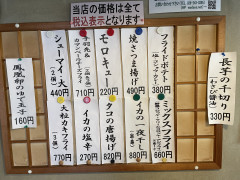 当店の価格は全て
税込表示となります。
長芋の千切り
(わさび醤油)
330円
フライドポテト
380円
ミックスフライ
660円
焼さつま揚げ
490円
イカの一夜干し
880円
モロキュー
220円
タコの唐揚げ
820円
710円
イカの塩辛
270円
シューマイ
(2個)
440円
大粒カキフライ
(3個)
770円
鳳凰卵のゆで玉子
160円